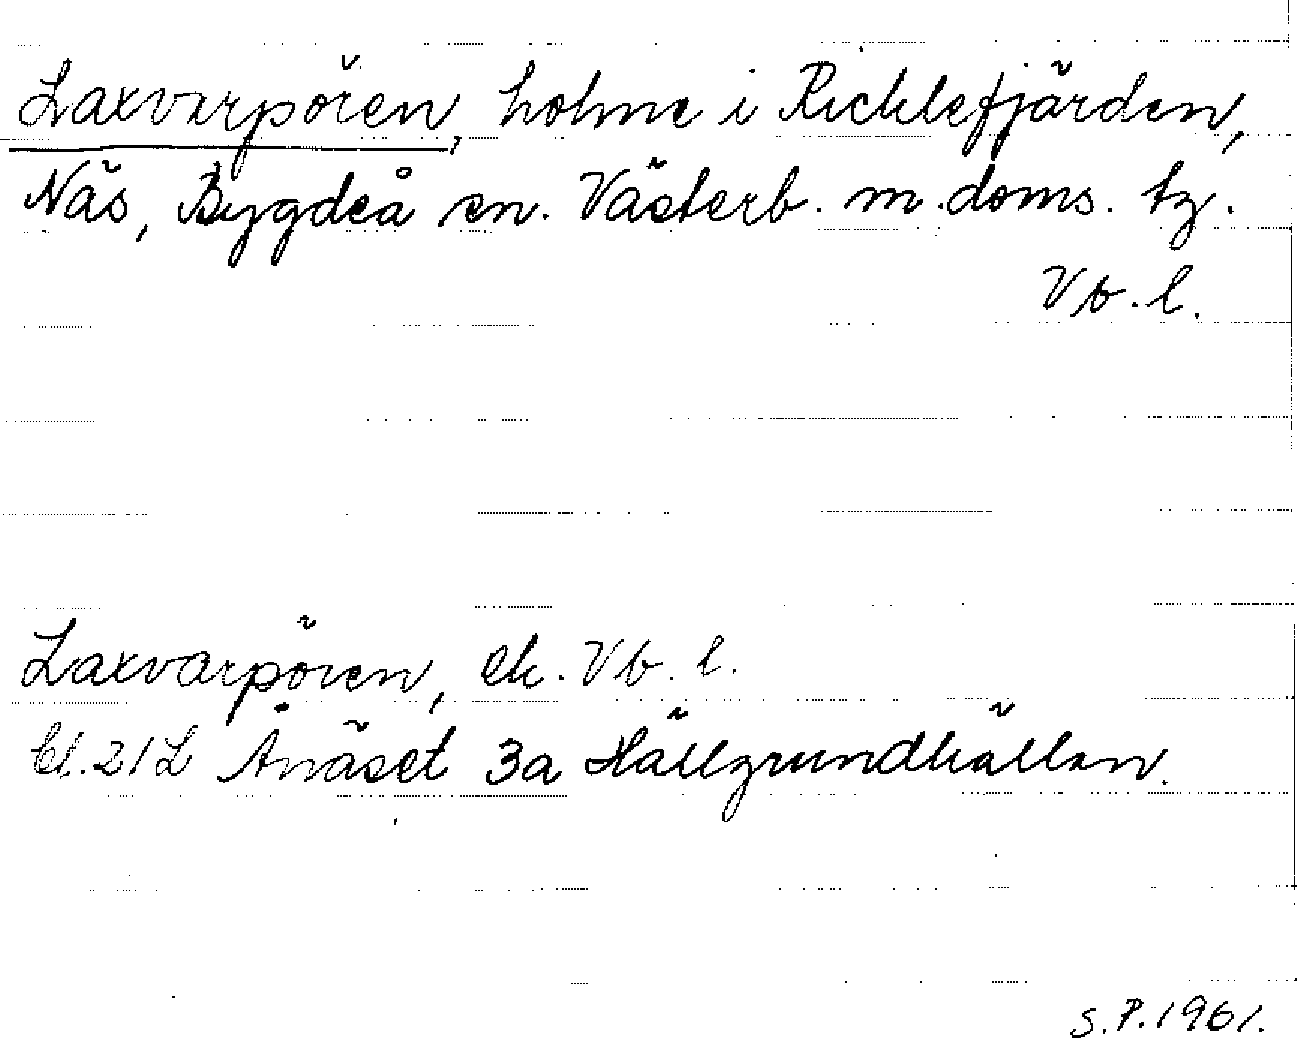 Laxvarpören, holme i Ricklefjärden,
Näs, Bygdeå sn. Västerb. m. doms. tg.
Vb. l.
Laxvarpören, ek. Vb. l.
bl. 21L Ånäset 3a Hällgrundhällan.
S.P. 1961.